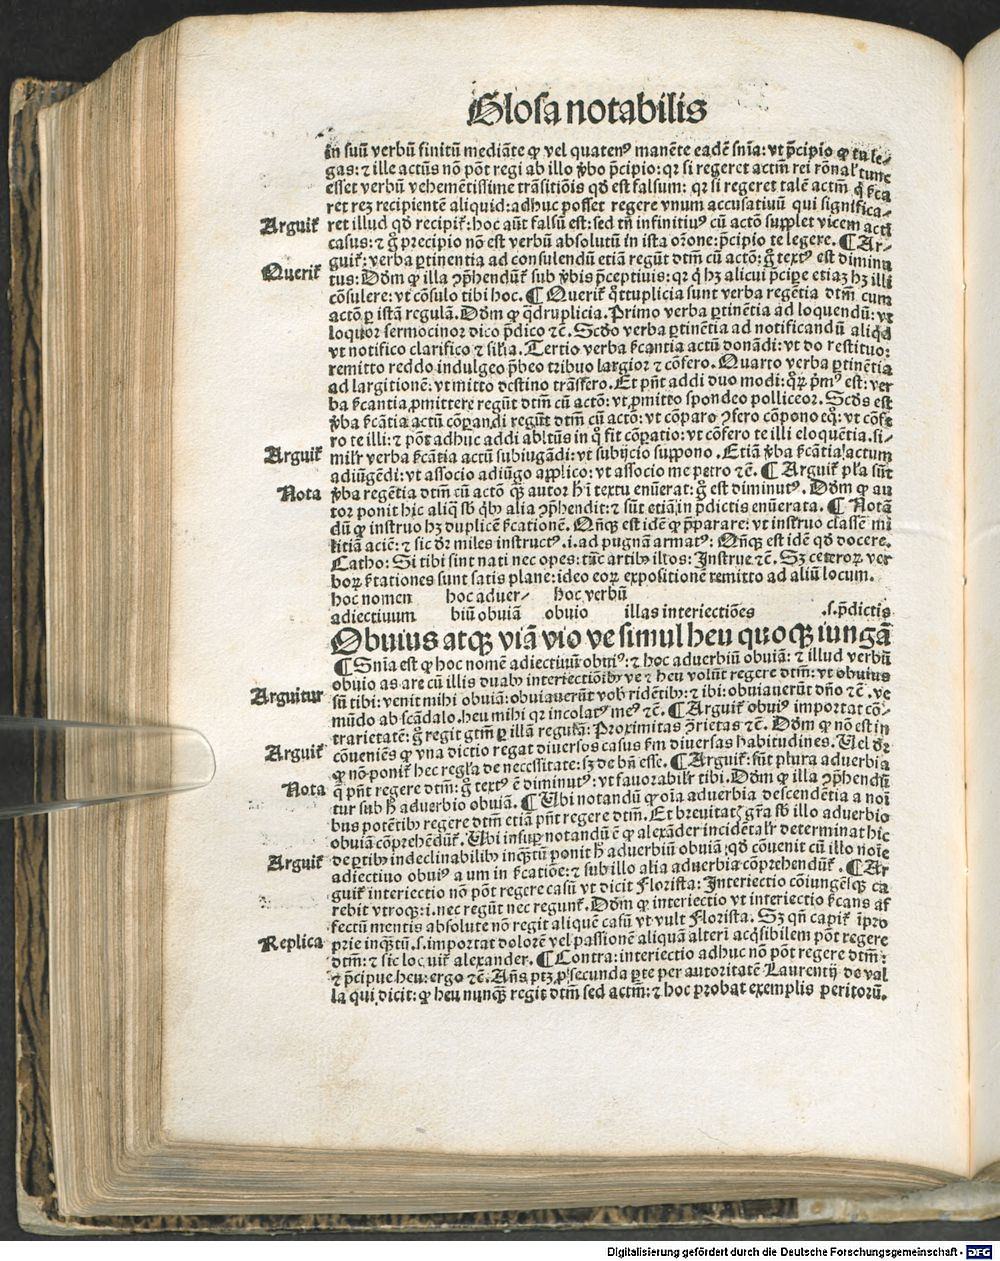 Glosa notabilis
in suũ verbũ finitũ mediãte ꝙ vel quatenꝰ manẽte eadẽ snĩa: vt p̃cipio ꝙ tu le-
gas: ⁊ ille actũs nõ põt regi ab illo ṽbo p̃cipio: qꝛ si regeret actm̃ rei rõnal' tunc
esset verbũ vehemẽtissime trãsitiõis qď est falsum: qꝛ si regeret talẽ actm̃
ret rez recipientẽ aliquid: adhuc posset regere vnum accusatiuũ qui significa-
Arguiť ret illud qď recipiť: hoc aũt falsũ est: sed tñ infinitiuꝰ cũ actõ supplet vicem acti
casus: ⁊ g̃ precipio nõ est verbũ absolutũ in ista oĩone: p̃cipio te legere. ¶ Ar-
guiť: verba ꝑtinentia ad consulendũ etiã regũt dtm̃ cũ actõ: g̃ textꝰ est diminu
Queriť tus: Dõm ꝙ illa ↄp̃hendũť sub ṽbis p̃ceptiuis: qꝛ q̇ hꝫ alicui p̃cipe etiaꝫ hꝫ illi
cõsulere: vt cõsulo tibi hoc. ¶ Queriť q̃ttuplicia sunt verba regẽtia dtm̃ cum
actõ ꝑ istã regulã. Dõm ꝙ q̃druplicia. Primo verba ꝑtinẽtia ad loquendũ: vt
loquor sermocinor dico p̃dico ⁊c̃. Scďo verba ꝑtinẽtia ad notificandũ aliqď
vt notifico clarifico ⁊ silĩa. Tertio verba ẜcantia actũ donãdi: vt do restituo:
remitto reddo indulgeo p̃beo tribuo largior ⁊ cõfero. Quarto verba ꝑtinẽtia
ad largitionẽ: vt mitto destino trãsfero. Et pñt addi duo modi: qꝝ p̃mꝰ est: ver
ba ẜcantia ꝓmittere regũt dtm̃ cũ actõ: vt ꝓmitto spondeo polliceor. Scďs est
ṽba ẜcãtia actũ cõꝑandi regũt dtm̃ cũ actõ: vt cõparo ↄfero cõpono eq̃: vt cõfe
ro te illi: ⁊ põt adhuc addi abltũs in q̃ fit cõꝑatio: vt cõfero te illi eloquẽtia. si-
Arguiť milr̃ verba ẜcãtia actũ subiugãdi: vt subijcio suppono. Etiã ṽba ẜcãtia actum
adiũgẽdi: vt associo adiũgo applico: vt associo me petro ⁊c̃. ¶ Arguiť pl'a sũt
Nota ṽba regẽtia dtm̃ cũ actõ q̃ꝫ autor hĩ textu enũerat: g̃ est diminutꝰ. Dõm ꝙ au
tor ponit hic aliq̃ sb̃ q̇bꝫ alia ↄp̃hendit: ⁊ sũt etiã in p̃dictis enũerata. ¶ Notã
dũ ꝙ instruo hꝫ duplicẽ ẜcationẽ. Qñqꝫ est idẽ ꝙ p̃parare: vt instruo classẽ mi
litiã aciẽ: ⁊ sic dr̃ miles instructꝰ .i. ad pugnã armatꝰ: Qñqꝫ est idẽ qď docere.
Catho: Si tibi sint nati nec opes: tũc artibꝫ illos: Instrue ⁊c̃. Sꝫ ceteroꝝ ver
boꝝ ẜtationes sunt satis plane: ideo eoꝝ expositionẽ remitto ad aliũ locum.
hoc nomen hoc aduer- hoc verbũ
adiectiuum biũ obuiã obuio illas interiectiões .s. p̃dictis
Obuius atqꝫ viã vio ve simul heu quoqꝫ iungã
¶ Snĩa est ꝙ hoc nomẽ adiectiuũ obuiꝰ: ⁊ hoc aduerbiũ obuiã: ⁊ illud verbũ
obuio as are cũ illis duabꝫ interiectiõibꝫ ve ⁊ heu volũt regere dtm̃: vt obuius
Arguitur sũ tibi: venit mihi obuiã: obuiauerũt vob̃ ridẽtibꝫ: ⁊ ibi: obuiauerũt dño ⁊c̃. ve
mũdo ab scãdalo. heu mihi qꝛ incolatꝰ meꝰ ⁊c̃. ¶ Arguiť obuiꝰ importat cõ-
trarietatẽ: g̃ regit gtm̃ ꝑ illã regulã: Proximitas ↄ̃rietas ⁊c̃. Dõm ꝙ nõ est in
Arguiť cõueniẽs ꝙ vna dictio regat diuersos casus ẜm diuersas habitudines. Uel dr̃
ꝙ nõ poniť hec regl'a de necessitate: sꝫ de bñ esse. ¶ Arguiť: sũt plura aduerbia
Nota q̃ pñt regere dtm̃: g̃ textꝰ ẽ diminutꝰ: vt fauorabilr̃ tibi. Dõm ꝙ illa ↄp̃hendũ
tur sub h̃ aduerbio obuiã. ¶ Ubi notandũ ꝙ oĩa aduerbia descendẽtia a noĩ
bus potẽtibꝫ regere dtm̃ etiã pñt regere dtm̃. Et breuitatꝭ gr̃a sb̃ illo aduerbio
obuiã cõprehẽdũť. Ubi insuꝑ notandũ ẽ ꝙ alexãder incidẽtalr̃ determinat hic
Arguiť de ꝑtibꝫ indeclinabilibꝫ inq̃ꝫtũ ponit h̃ aduerbiũ obuiã: qď cõuenit cũ illo noĩe
adiectiuo obuiꝰ a um in ẜcatiõe: ⁊ sub illo alia aduerbia cõprehendũť. ¶ Ar
guiť interiectio nõ põt regere casũ vt dicit Florista: Interiectio cõiungẽsqꝫ ca
rebit vtroqꝫ: i. nec regũt nec regunť. Dõm ꝙ interiectio vt interiectio ẜcans af
fectũ mentis absolute nõ regit aliquẽ casũ vt vult Florista. Sꝫ qñ capiť ĩpro
Replica prie inq̃ꝫtũ .s. importat dolorẽ vel passionẽ aliquã alteri acq̃sibilem põt regere
dtm̃: ⁊ sic loquiť alexander. ¶ Contra: interiectio adhuc nõ põt regere dtm̃:
⁊ p̃cipue heu: ergo ⁊c̃. Añs ptꝫ ꝓ secunda ꝑte per autoritatẽ Laurentij de val
la qui dicit: ꝙ heu nunq̃ꝫ regit dtm̃ sed actm̃: ⁊ hoc probat exemplis peritorũ.
Digitalisierung gefördert durch die Deutsche Forschungsgemeinschaft - DFG